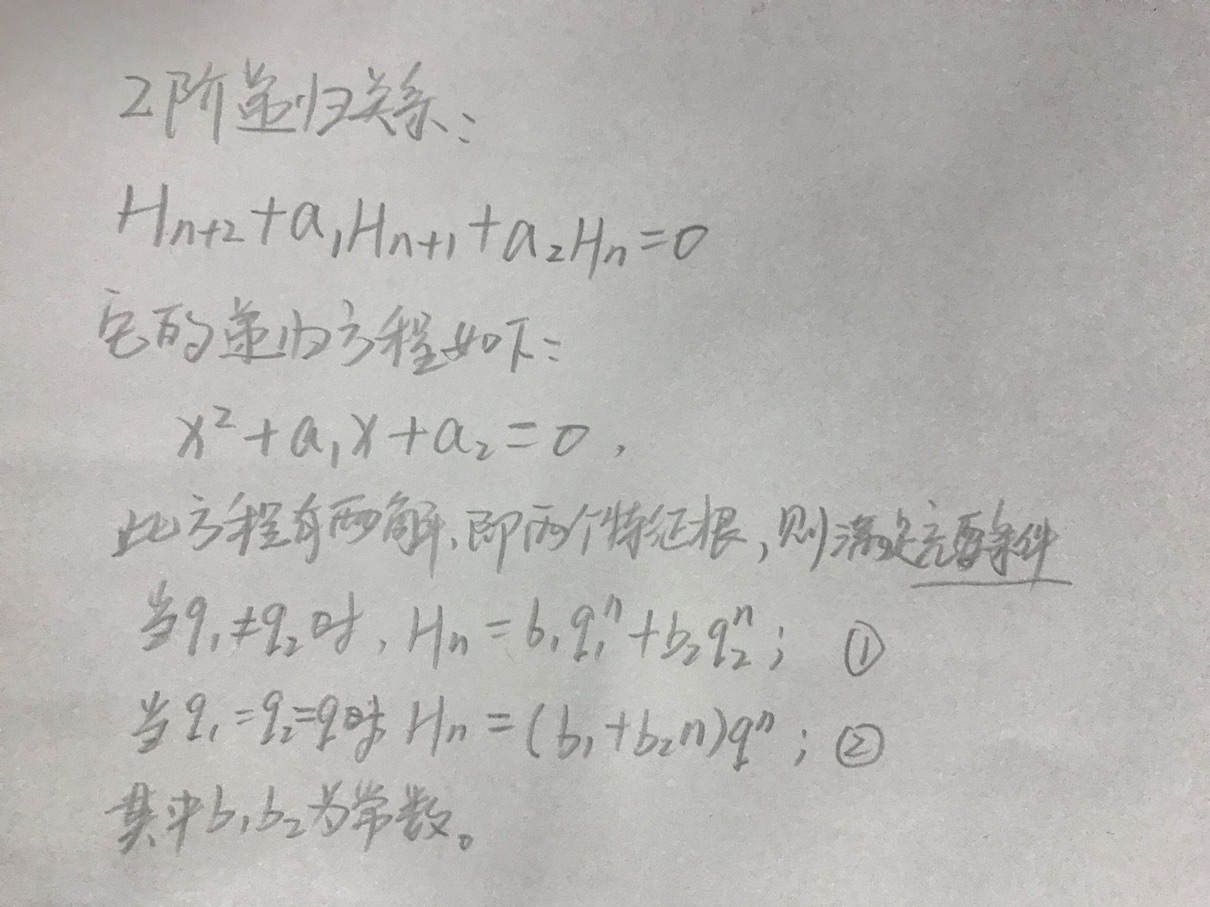 2阶递归关系:
Hn+2+a₁Hn+1+a₂Hn=0
它的递归方程如下:
x²+a₁x+a₂=0,
此方程有两解,即两个特征根,则满足充要条件
当q₁≠q₂时,Hn=b₁q₁ⁿ+b₂q₂ⁿ; ①
当q₁=q₂=q时 Hn=(b₁+b₂n)qⁿ; ②
其中b₁b₂为常数。